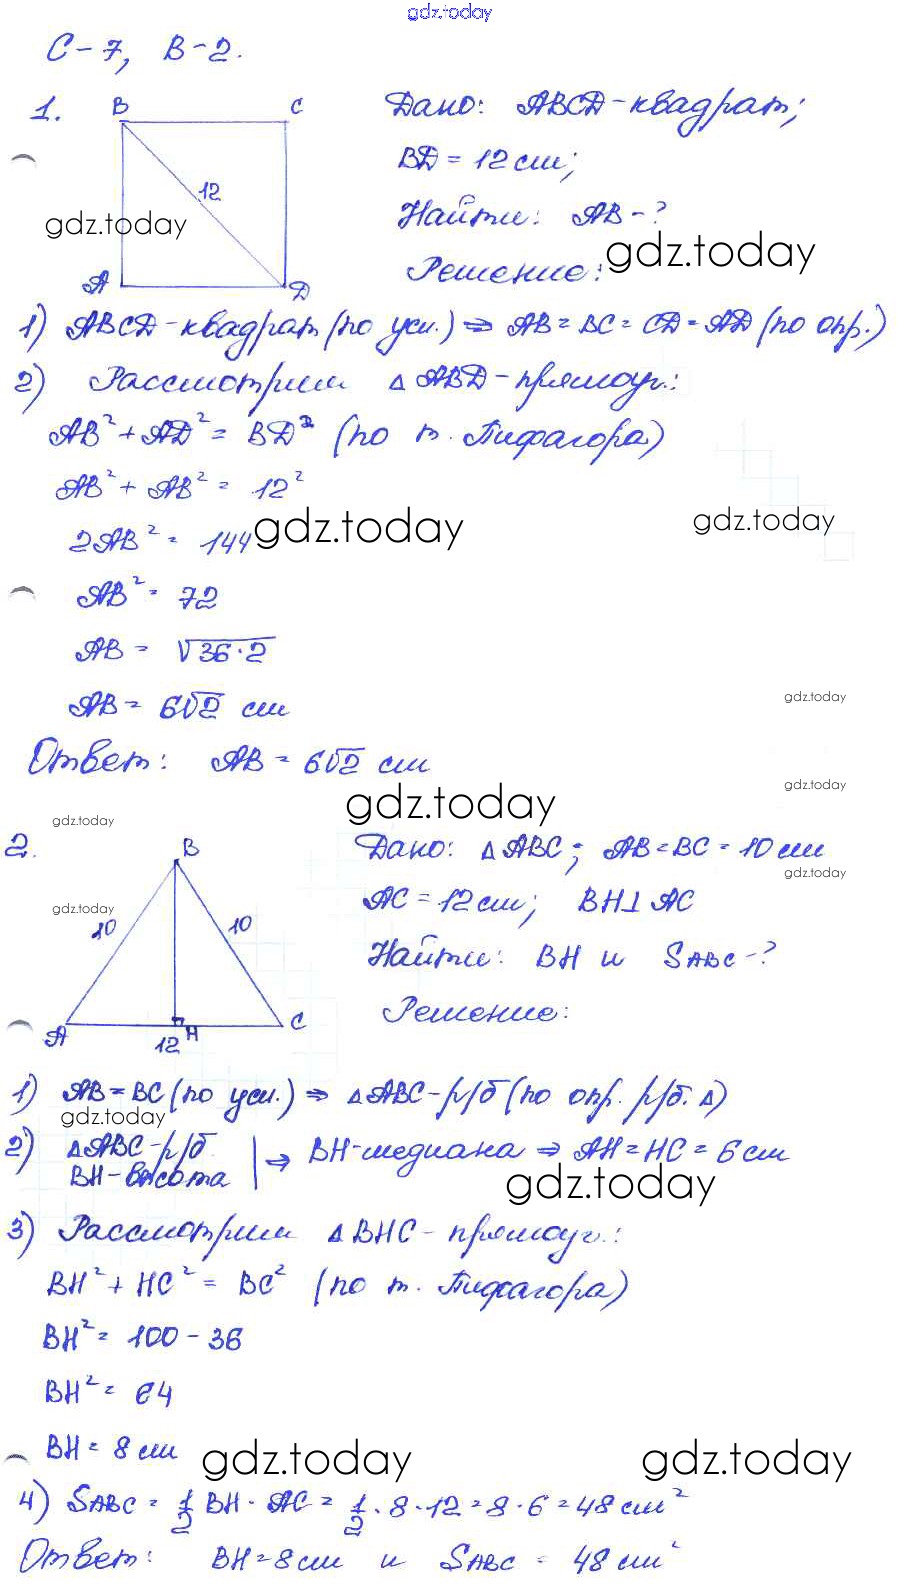 gdz.today
С-7, В-2.
1.
B C
12
A D
Дано: ABCD-квадрат;
BD = 12 см;
gdz.today
Найти: AB-?
gdz.today
Решение:
1) ABCD-квадрат (по усл.) ⇒ AB = BC = CD = AD (по опр.)
2) Рассмотрим △ABD-прямоуг.:
AB² + AD² = BD² (по т. Пифагора)
AB² + AB² = 12²
2AB² = 144
gdz.today
gdz.today
AB² = 72
AB = √36·2
gdz.today
AB = 6√2 см
Ответ: AB = 6√2 см
gdz.today
gdz.today
gdz.today
2.
B
10 10
A H C
12
Дано: △ABC; AB = BC = 10 см
gdz.today
AC = 12 см; BH⊥AC
gdz.today
Найти: BH и SABC-?
Решение:
1) AB = BC (по усл.) ⇒ △ABC-р/б (по опр. р/б. △)
gdz.today
2) △ABC-р/б
BH-высота | ⇒ BH-медиана ⇒ AH = HC = 6 см
gdz.today
3) Рассмотрим △BHC-прямоуг.:
BH² + HC² = BC² (по т. Пифагора)
BH² = 100 - 36
BH² = 64
BH = 8 см
gdz.today
gdz.today
4) SABC = 1/2 BH · AC = 1/2 · 8 · 12 = 8 · 6 = 48 см²
Ответ: BH = 8 см и SABC = 48 см²